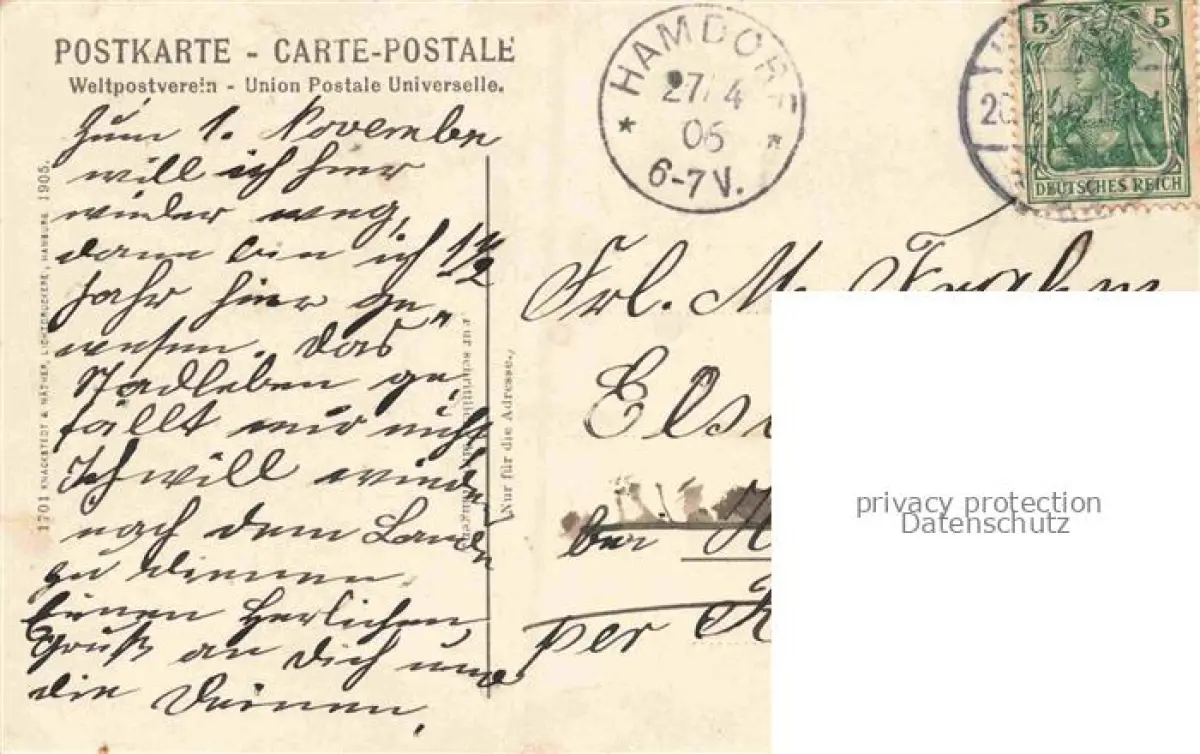 POSTKARTE - CARTE-POSTALE
Weltpostverein - Union Postale Universelle.
Zum 1. November
will ich hier
wieder weg,
dann bin ich 1 1/2
Jahr hier ge-
wesen. Das
Stadleben ge-
fällt mir nicht
Ich will wieder
nach dem Lande
zu dienen.
Einen Herlichen
Gruß an Dich und
die Deinen.
1701 KNACKSTEDT & NÄTHER, LICHTDRUCKEREI, HAMBURG. 1905.
Nur für die Adresse.
HAMDORF
27/4
06
6-7V.
5 5
DEUTSCHES REICH
Frl. M. Frahm
Els
bei H
per R
privacy protection
Datenschutz